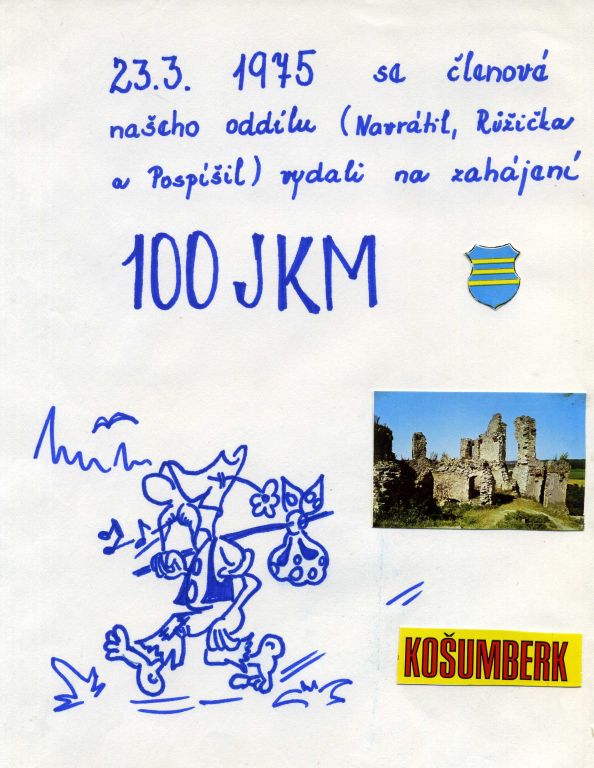 23.3. 1975 se členová
našeho oddílu (Navrátil, Růžička
a Pospíšil) vydali na zahájení
100 JKM
KOŠUMBERK